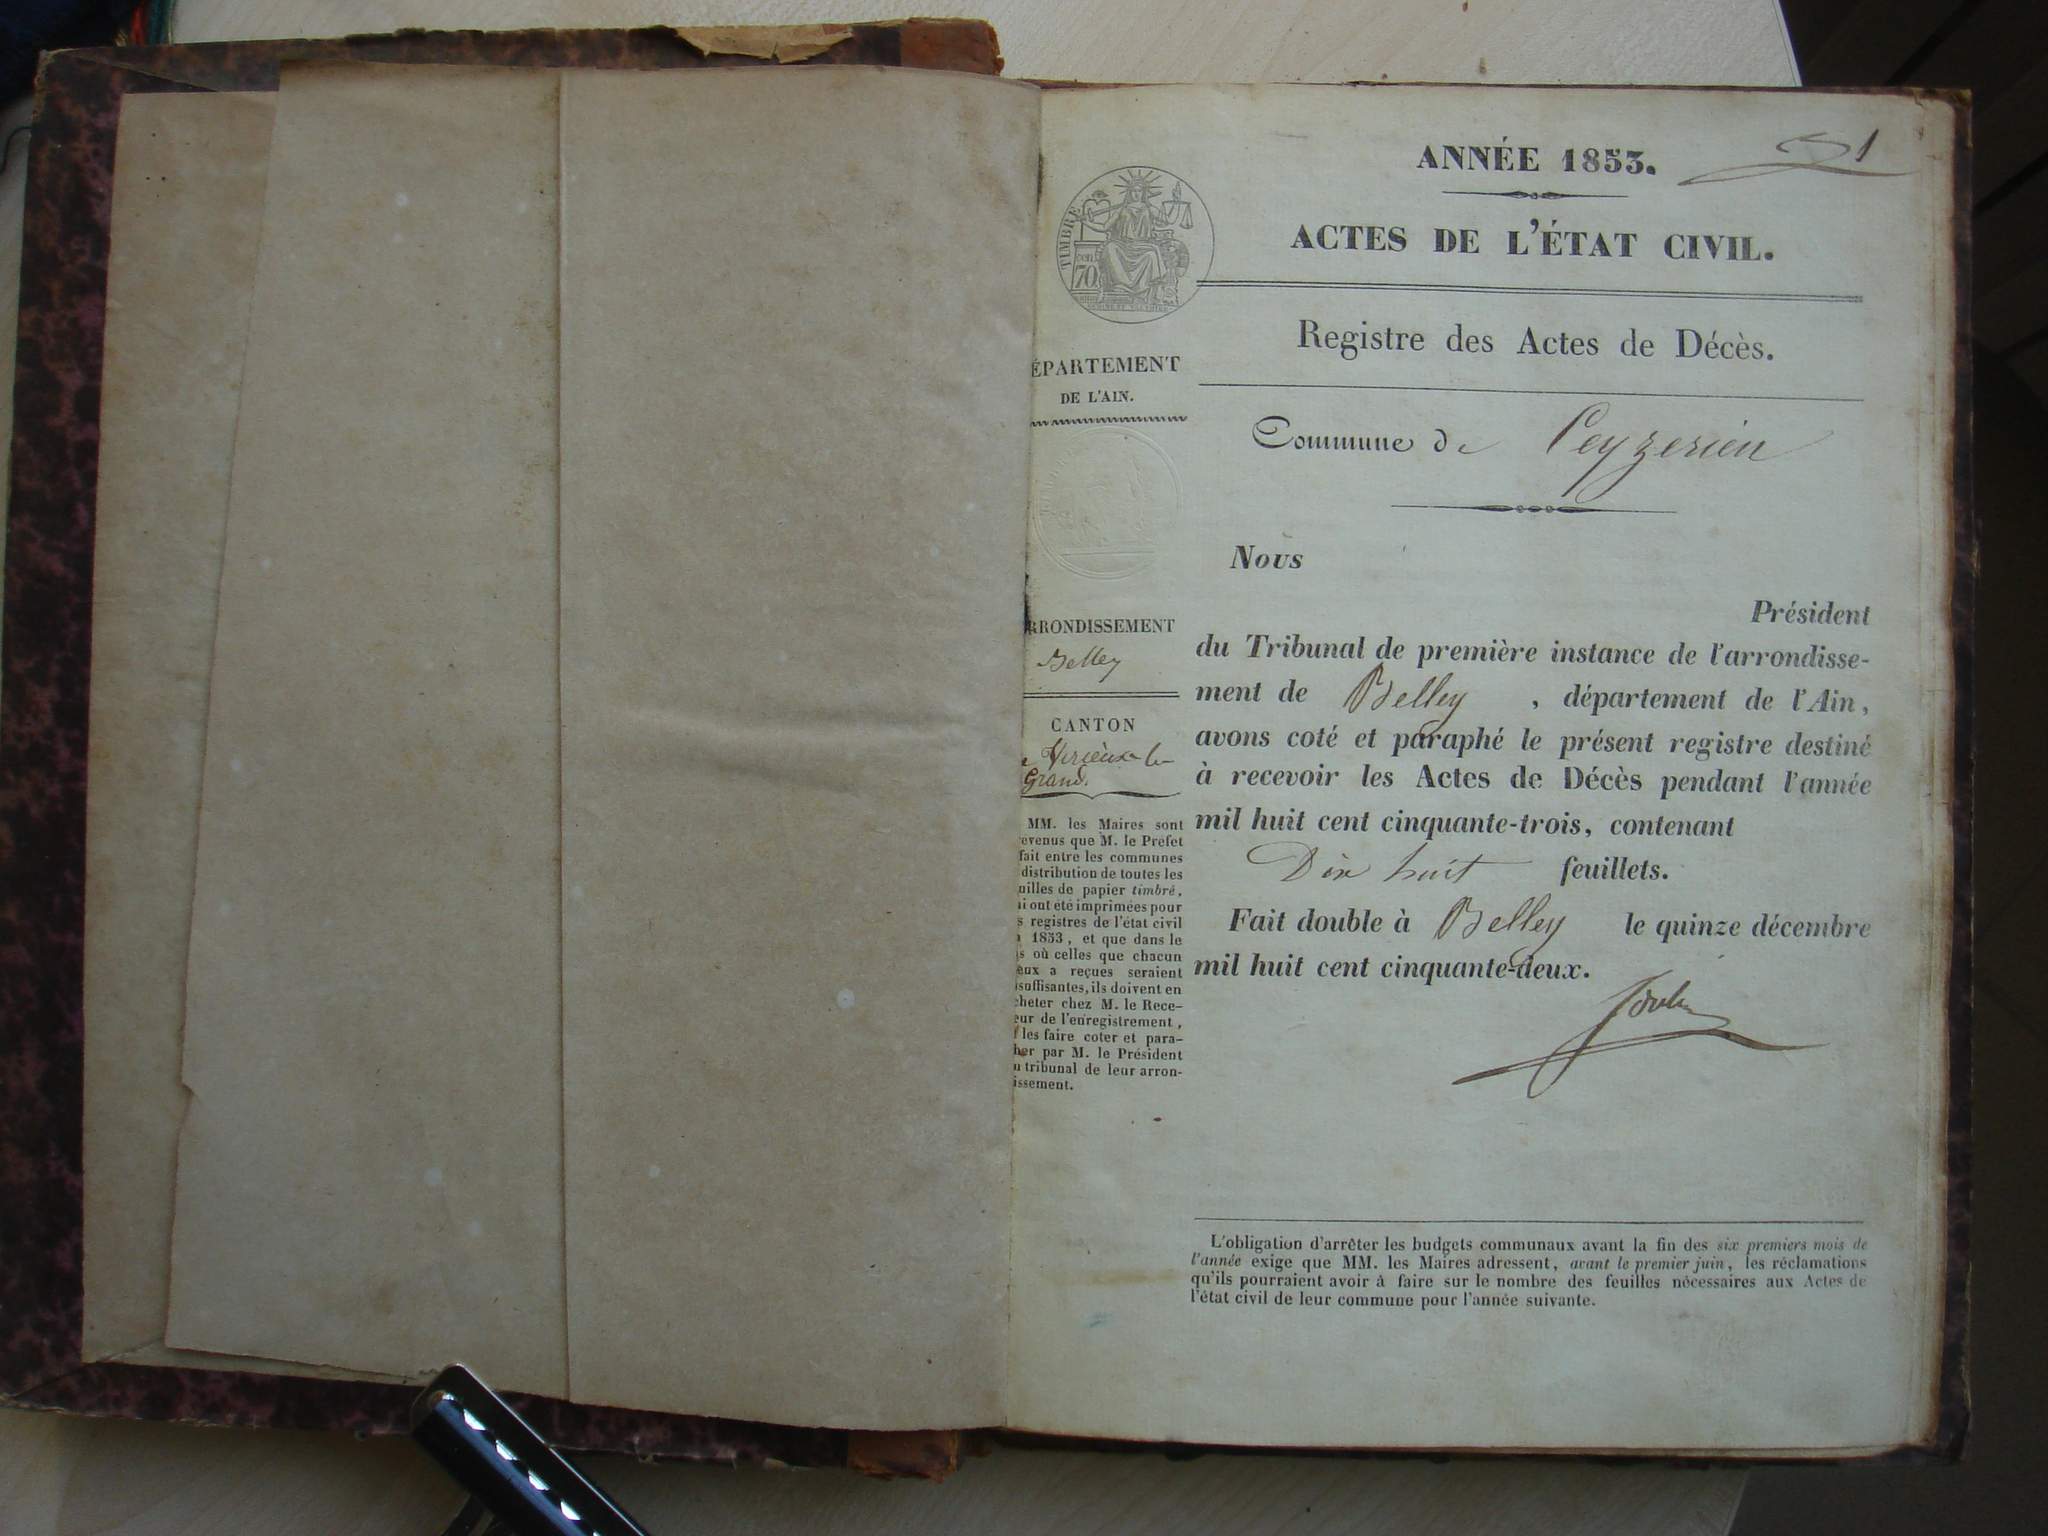 ANNÉE 1853.
1
ACTES DE L'ÉTAT CIVIL.
TIMBRE
70
Registre des Actes de Décès.
ÉPARTEMENT
DE L'AIN.
Commune de Ceyzerieu
Nous
Président
du Tribunal de première instance de l'arrondisse-
ment de Belley, département de l'Ain,
avons coté et paraphé le présent registre destiné
à recevoir les Actes de Décès pendant l'année
mil huit cent cinquante-trois, contenant
Dix huit feuillets.
Fait double à Belley le quinze décembre
mil huit cent cinquante-deux.
RRONDISSEMENT
Belley
CANTON
Virieux le
Grand.
MM. les Maires sont
évenus que M. le Préfet
fait entre les communes
distribution de toutes les
uilles de papier timbré,
i ont été imprimées pour
s registres de l'état civil
1853, et que dans le
s où celles que chacun
eux a reçues seraient
suffisantes, ils doivent en
cheter chez M. le Rece-
eur de l'enregistrement,
les faire coter et para-
her par M. le Président
u tribunal de leur arron-
issement.
L'obligation d'arrêter les budgets communaux avant la fin des six premiers mois de
l'année exige que MM. les Maires adressent, avant le premier juin, les réclamations
qu'ils pourraient avoir à faire sur le nombre des feuilles nécessaires aux Actes de
l'état civil de leur commune pour l'année suivante.